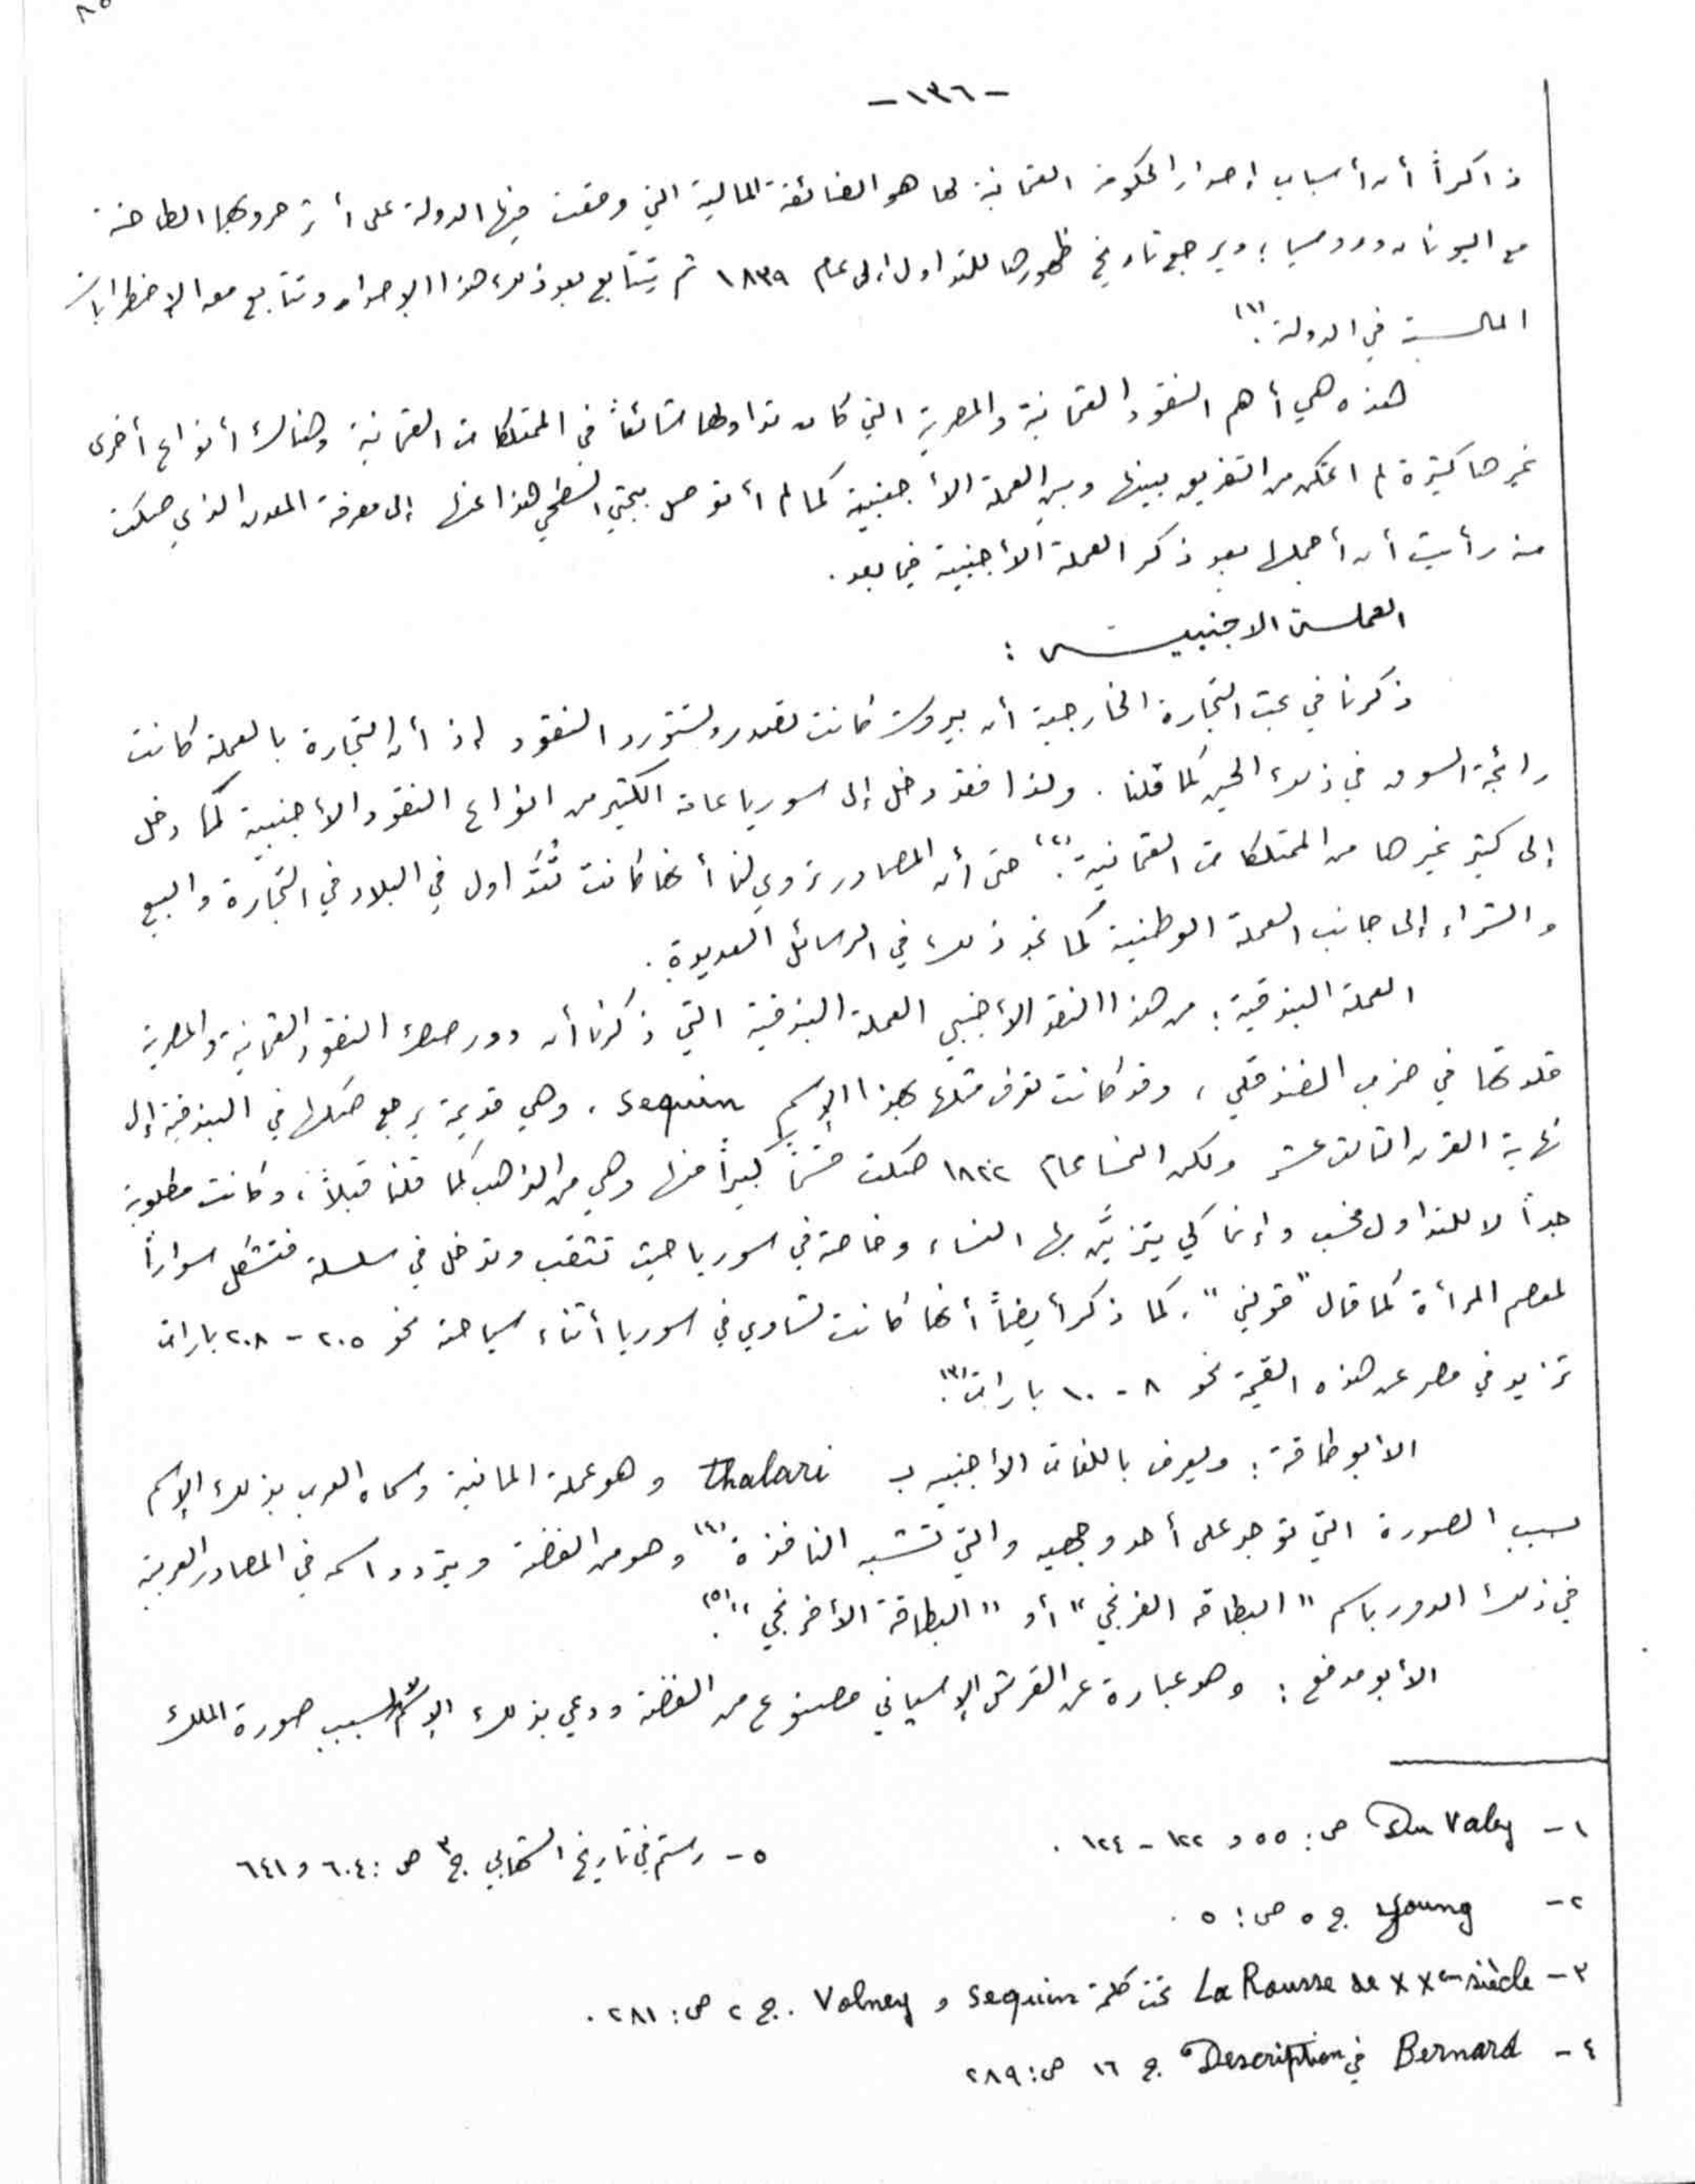 -١٣٦-
ذاكراً أن أسباب إصدار الحكومة العثمانية لها هو الضائقة المالية التي وقعت فيها الدولة على أثر حروبها الطاحنة
مع اليونان وروسيا ؛ ويرجع تاريخ ظهورها للتداول إلى عام ١٨٣٩ ثم يتتابع بعد ذلك هذا الإصدار وتتابع معه الإضطرابات
المالية في الدولة (١).
هذه هي أهم النقود العثمانية والمصرية التي كان تداولها شائعاً في الممتلكات العثمانية وهناك أنواع أخرى
غيرها كثيرة لم اتمكن من التفريق بينها وبين العملة الأجنبية كما لم أتوصل ببحثي السطحي هذا عنها إلى معرفة المعدن الذي صكت
منه رأيت أن أجملها بعد ذكر العملة الأجنبية فيما بعد .
العملة الاجنبية :
ذكرنا في بحث التجارة الخارجية أن بيروت كانت تصدر وتستورد النقود إذ أن التجارة بالعملة كانت
رائجة السوق في ذلك الحين كما قلنا . ولذا فقد دخل إلى سوريا عامة الكثير من انواع النقود الأجنبية كما دخل
إلى كثير غيرها من الممتلكات العثمانية (٢). حتى أن المصادر تروي لنا أنها كانت تُتَداول في البلاد في التجارة والبيع
والشراء إلى جانب العملة الوطنية كما نجد ذلك في الرسائل العديدة .
العملة البندقية : من هذا النقد الأجنبي العملة البندقية التي ذكرنا أن دور صك النقود العثمانية والمصرية
قلدتها في ضرب الفندقلي ، وقد كانت تعرف مثلها بهذا الإسم sequin ، وهي قديمة يرجع صكها في البندقية إلى
نهاية القرن الثالث عشر ولكن النمسا عام ١٨٢٢ صكت قسماً كبيراً منها وهي من الذهب كما قلنا قبلاً ، وكانت مطلوبة
جداً لا للتداول فحسب وإنما كي يتزيَّن بها النساء وخاصة في سوريا حيث تثقب وتدخل في سلسلة فتشكل سواراً
لمعصم المرأة كما قال "فولني" . كما ذكر أيضاً أنها كانت تساوي في سوريا أثناء سياحته نحو ٢٠٥ - ٢٠٨ بارات
تزيد في مصر عن هذه القيمة نحو ٨ - ١٠ بارات (٣).
الأبوطاقة : ويعرف باللغات الأجنبيه ب thalari وهو عملة المانية وسماه العرب بذلك الإسم
بسبب الصورة التي توجد على أحد وجهيه والتي تشبه النافذة (٤) وهو من الفضة ويتردد اسمه في المصادر العربية
في ذلك الدور باسم "البطاقه الفرنجي" أو "البطاقة الأفرنجي" (٥).
الأبو مدفع : وهو عبارة عن القرش الإسباني مصنوع من الفضة ودعي بذلك الإسم بسبب صورة الملك
١- Du Valey ص: ٥٥ و ١٢٢ - ١٢٤ .
٢- Young ج ٥ ص: ٥ .
٣- La Rousse de XXem siècle تحت كلمة sequin و Volney . ج ٢ ص: ٢٨١ .
٤- Bernard في Description ج ١٦ ص: ٢٨٩
٥- رستم في تاريخ الشهابي ج ٣ ص: ٦٠٤ و ٦٤١